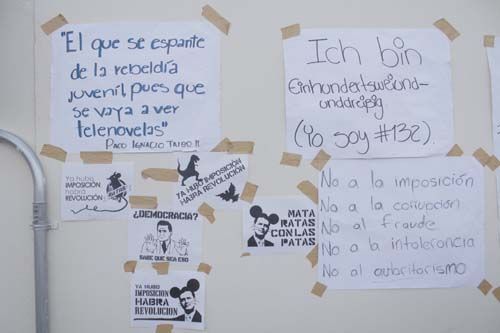 "El que se espante
de la rebeldía
juvenil, pues que
se vaya a ver
telenovelas"
PACO IGNACIO TAIBO II
Ich bin
Einhundertsweiund-
unddreißig
(Yo soy #132).
Ya hubo
IMPOSICIÓN
habrá
REVOLUCIÓN
YA HUBO IMPOSICIÓN
HABRÁ REVOLUCIÓN
¿DEMOCRACIA?
SABE QUE SEA ESO
MATA
RATAS
CON LAS
PATAS
YA HUBO
IMPOSICIÓN
HABRA
REVOLUCIÓN
No a la imposición
No a la corrupción
No al fraude
No a la intolerancia
No al autoritarismo